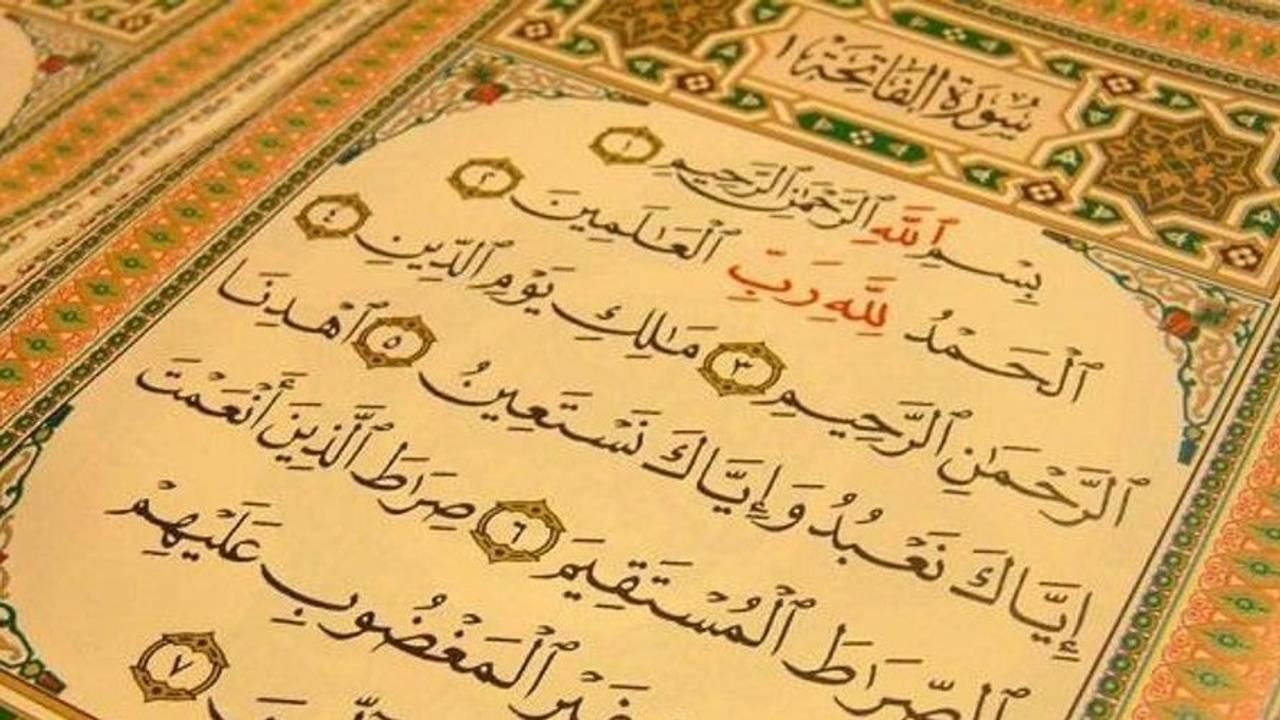 سُورَةُ الفَاتِحَةِ ١
بِسْمِ ٱللَّهِ ٱلرَّحْمَٰنِ ٱلرَّحِيمِ ١
ٱلْحَمْدُ لِلَّهِ رَبِّ ٱلْعَٰلَمِينَ ٢
ٱلرَّحْمَٰنِ ٱلرَّحِيمِ ٣ مَٰلِكِ يَوْمِ ٱلدِّينِ ٤
إِيَّاكَ نَعْبُدُ وَإِيَّاكَ نَسْتَعِينُ ٥ ٱهْدِنَا
ٱلصِّرَٰطَ ٱلْمُسْتَقِيمَ ٦ صِرَٰطَ ٱلَّذِينَ أَنْعَمْتَ
عَلَيْهِمْ غَيْرِ ٱلْمَغْضُوبِ عَلَيْهِمْ
٧